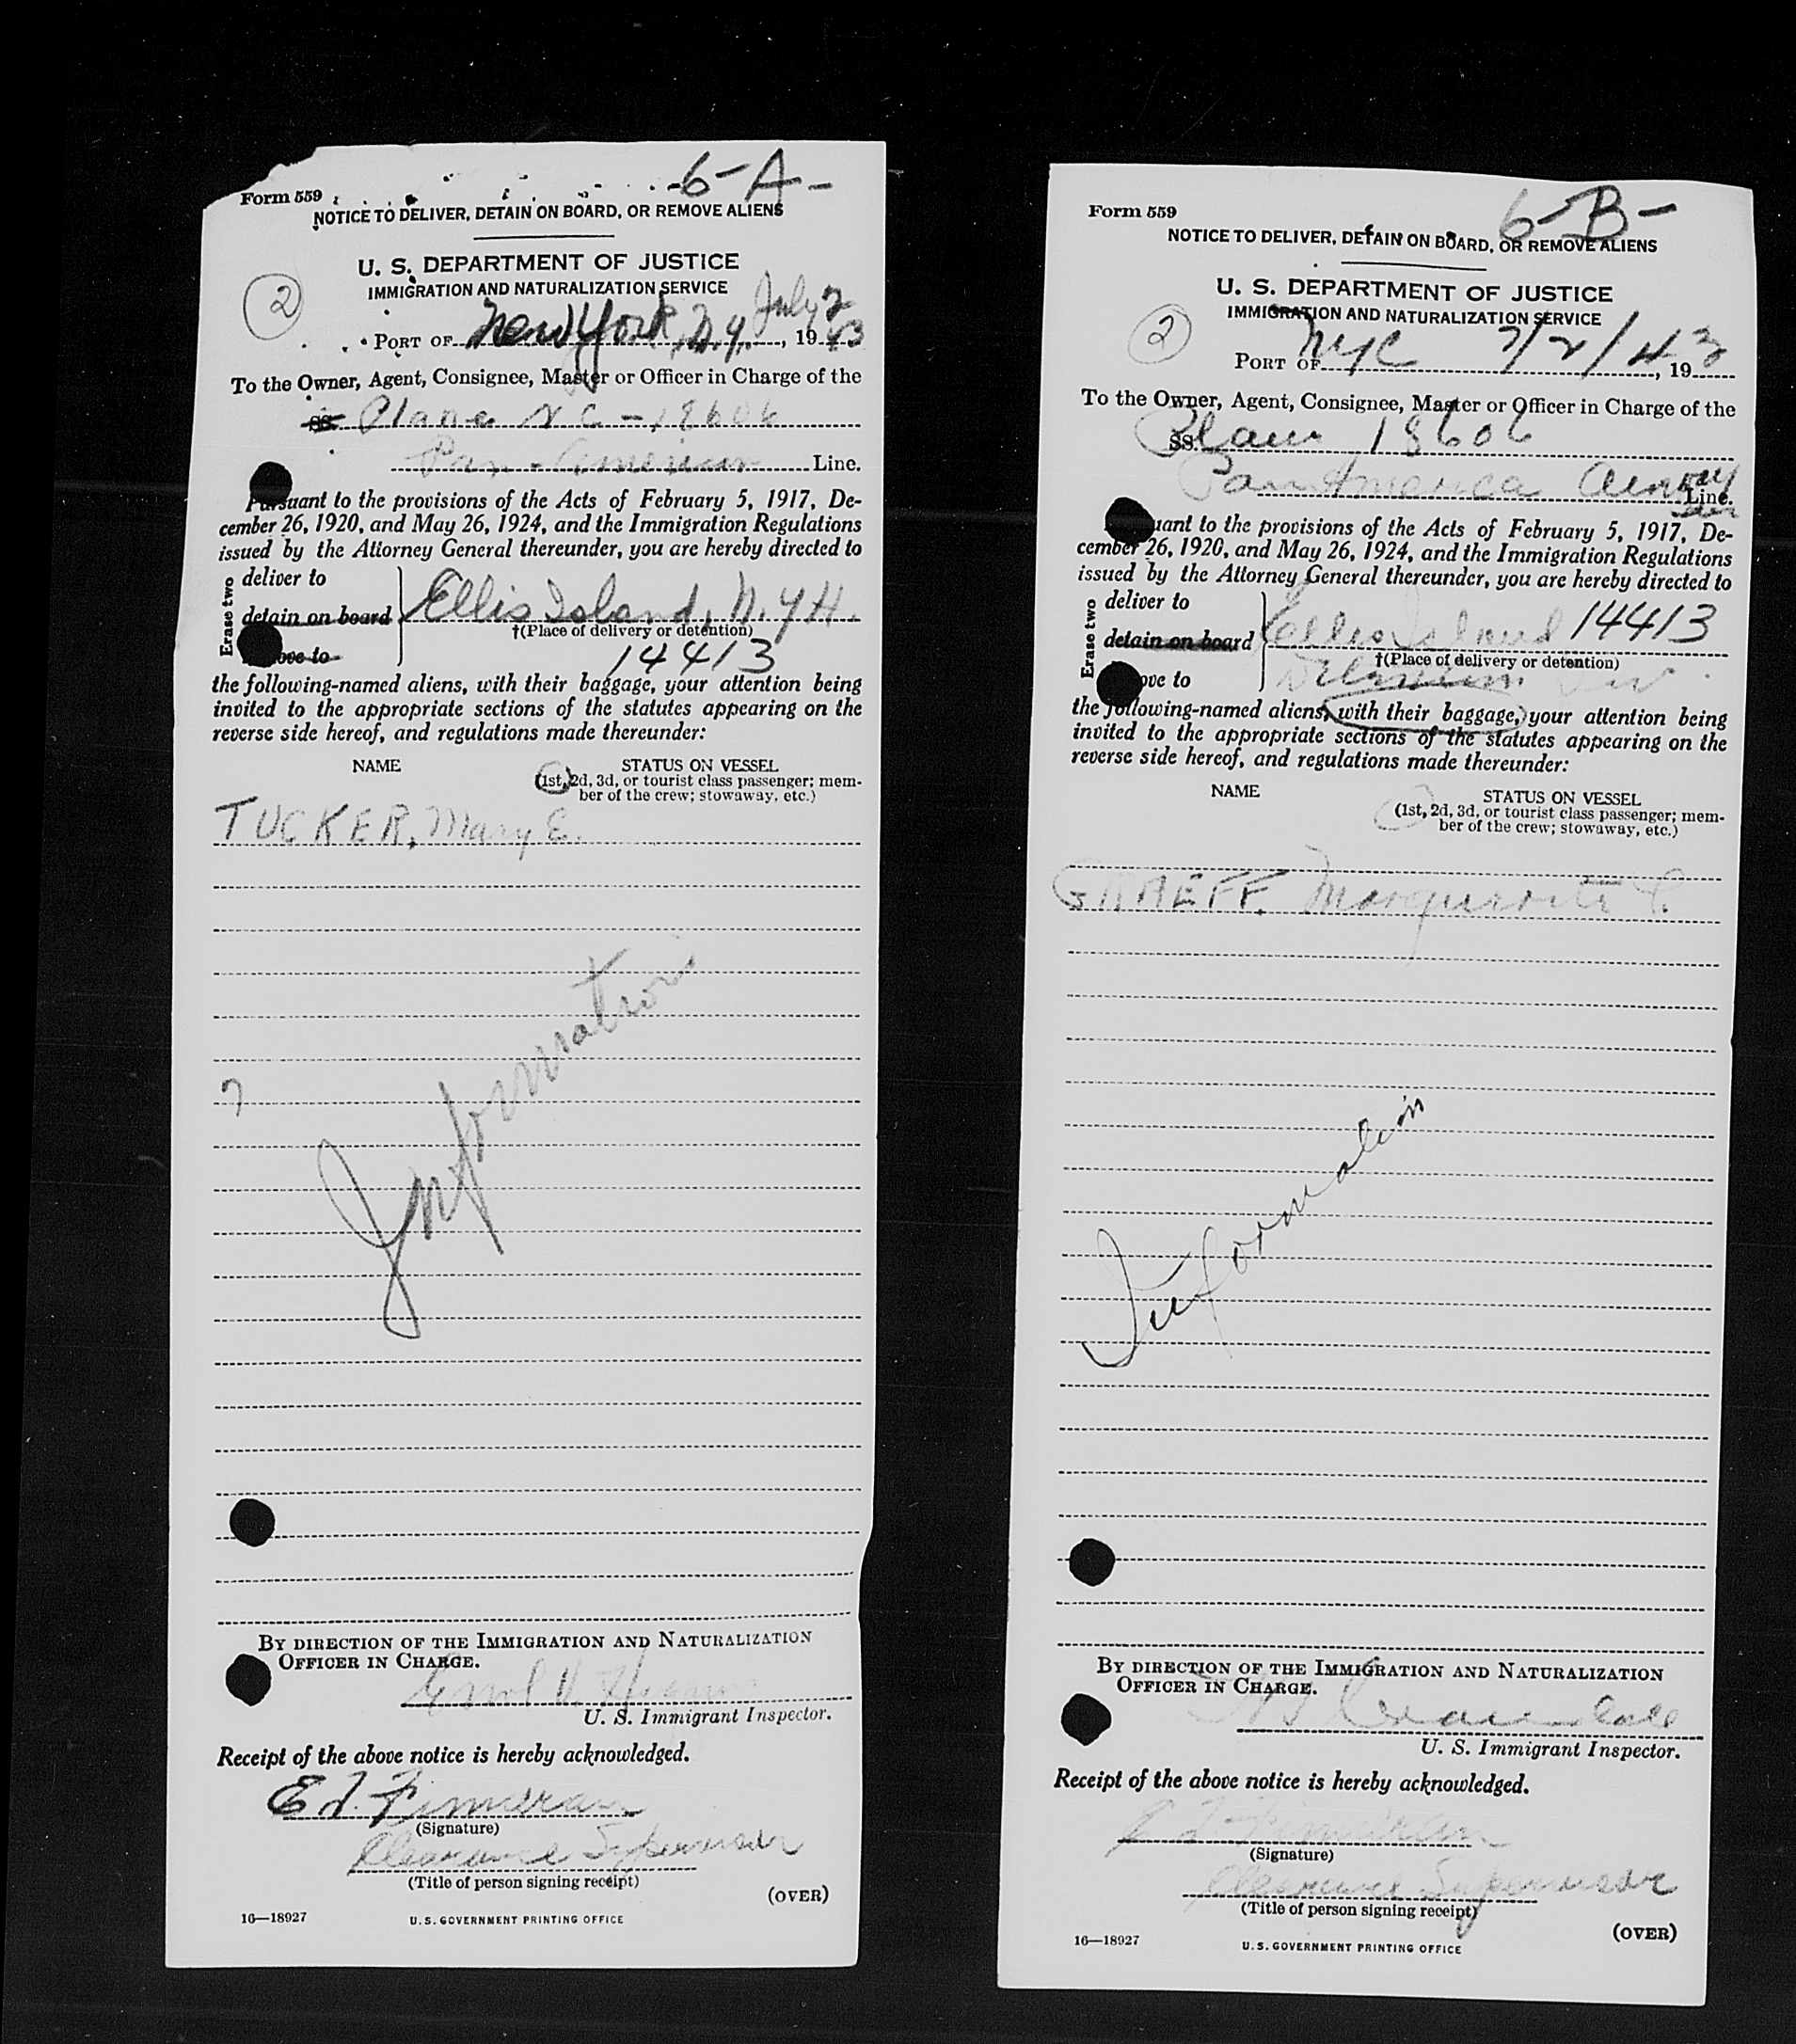 6-A-
Form 559
NOTICE TO DELIVER, DETAIN ON BOARD, OR REMOVE ALIENS
U. S. DEPARTMENT OF JUSTICE
IMMIGRATION AND NATURALIZATION SERVICE
2
July 2
PORT OF New York, N.Y., 1943
To the Owner, Agent, Consignee, Master or Officer in Charge of the
SS. Plane NC-18606
Pan-American Line.
Pursuant to the provisions of the Acts of February 5, 1917, De-
cember 26, 1920, and May 26, 1924, and the Immigration Regulations
issued by the Attorney General thereunder, you are hereby directed to
Erase two
deliver to
detain on board
Ellis Island, N.Y.H.
†(Place of delivery or detention)
remove to
14413
the following-named aliens, with their baggage, your attention being
invited to the appropriate sections of the statutes appearing on the
reverse side hereof, and regulations made thereunder:
NAME
STATUS ON VESSEL
(1st, 2d, 3d, or tourist class passenger; mem-
ber of the crew; stowaway, etc.)
TUCKER, Mary E.
Information
7
BY DIRECTION OF THE IMMIGRATION AND NATURALIZATION
OFFICER IN CHARGE.
U. S. Immigrant Inspector.
Receipt of the above notice is hereby acknowledged.
(Signature)
Clearance Supervisor
(Title of person signing receipt)
(OVER)
16—18927
U. S. GOVERNMENT PRINTING OFFICE
6-B-
Form 559
NOTICE TO DELIVER, DETAIN ON BOARD, OR REMOVE ALIENS
U. S. DEPARTMENT OF JUSTICE
IMMIGRATION AND NATURALIZATION SERVICE
2
PORT OF NYC 7/2/43, 19
To the Owner, Agent, Consignee, Master or Officer in Charge of the
SS. 18606
Pan America Line.
Pursuant to the provisions of the Acts of February 5, 1917, De-
cember 26, 1920, and May 26, 1924, and the Immigration Regulations
issued by the Attorney General thereunder, you are hereby directed to
Erase two
deliver to
detain on board
Ellis Island 14413
†(Place of delivery or detention)
remove to
the following-named aliens, with their baggage, your attention being
invited to the appropriate sections of the statutes appearing on the
reverse side hereof, and regulations made thereunder:
NAME
STATUS ON VESSEL
(1st, 2d, 3d, or tourist class passenger; mem-
ber of the crew; stowaway, etc.)
GRAEFF, Marguerite
Information
BY DIRECTION OF THE IMMIGRATION AND NATURALIZATION
OFFICER IN CHARGE.
U. S. Immigrant Inspector.
Receipt of the above notice is hereby acknowledged.
(Signature)
Clearance Supervisor
(Title of person signing receipt)
(OVER)
16—18927
U. S. GOVERNMENT PRINTING OFFICE